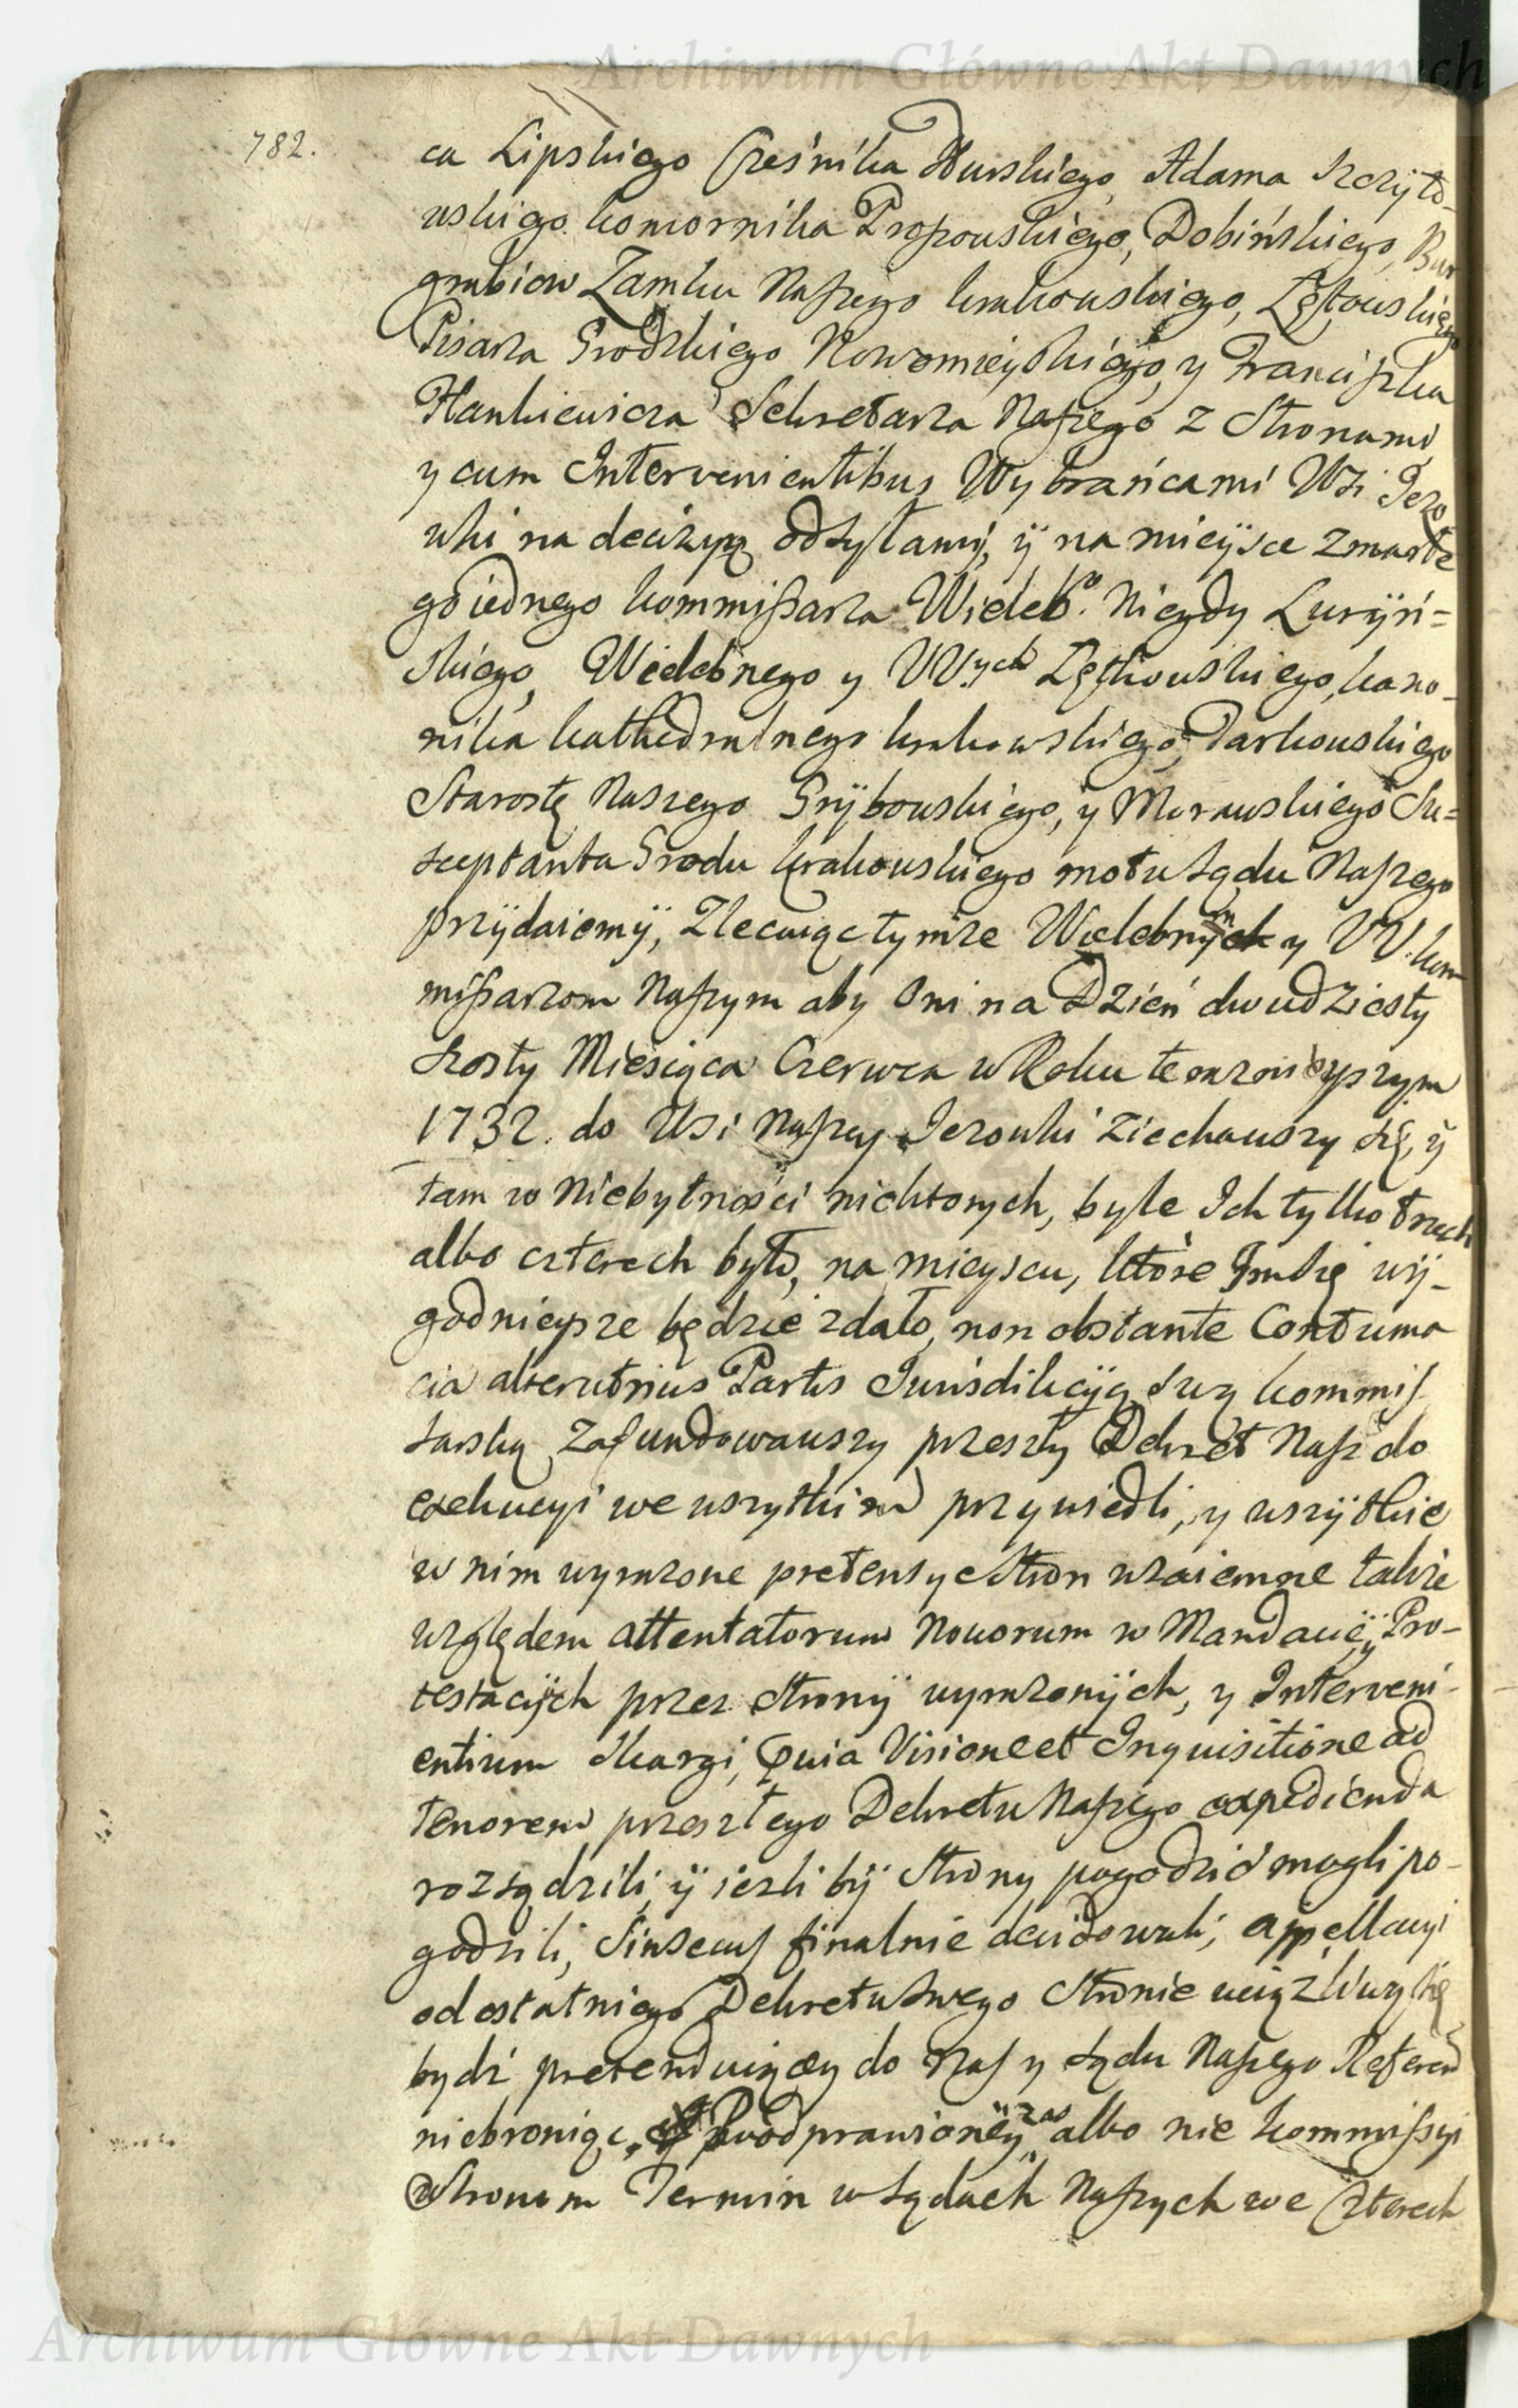 Archiwum Główne Akt Dawnych
782.
ca Lipskiego Cześnika Āurskiego, Adama Szczyto-
wskiego komornika Proszowskiego, Dobińskiego, Bur
grabiow Zamku Naszego krakowskiego, Łętowskiego
Pisarza Grodzkiego Nowomieyskiego, y Franciszka
Hankiewicza Sekretarza Naszego z Stronami
y cum Intervenientibus Wybrańcami Wsi Jezo
wki na decizyą odsyłamy, ÿ na mieysce zmarłe
go iednego kommissarza Wieleb.o Niegdy Luryń=
skiego, Wielebnego y UU.ych Łętkowskiego, kano-
nika kathedralnego krakowskiego, Parkowskiego
Starostę Naszego Grÿbowskiego, y Morawskiego Su=
sceptanta Grodu krakowskiego motu Sądu Naszego
przÿdaiemÿ, Zlecaiąc tymże Wielebnym y UU. kom
missarzom Naszym aby oni na Dzień dwudziesty
szosty Miesiąca Czerwca w Roku teraznieyszym
1732. do Wsi Naszey Jezowki ziechawszy się, ÿ
tam w Niebytności niektorych, byle Ich tylko trzech
albo czterech było, na mieyscu, ktore Im się wÿ-
godnieysze będzie zdało, non obstante Contuma
cia alterutrius Partis Jurisdikcÿą swą kommis
sarską zafundowawszy przeszły Dekret Nasz do
exekucyi we wszytkim przywiedli, y wszÿtkie
w nim wyrazone pretensye Stron wzaiemne także
względem attentatorum Novorum w Mandacie y Pro-
testacÿch przez Stronÿ wyrazonÿch, y Interveni-
entium skargi, Quia Visione et Inquisitione ad
tenorem przeszłego Dekretu Naszego expedienda
rozsądzili, ÿ iezli bÿ Strony pogodzić mogli po-
godzili, sinsecus finalnie decidowali, appellacyi
od ostatniego Dekretu swego Stronie uciązliwą się
bydź pretenduiącey do Nas y Sądu Naszego Referen
niebroniąc, Po odprawioneÿ zas albo nie kommissyi
Stronom Termin w Sądach Naszych we Czterech
Archiwum Główne Akt Dawnych